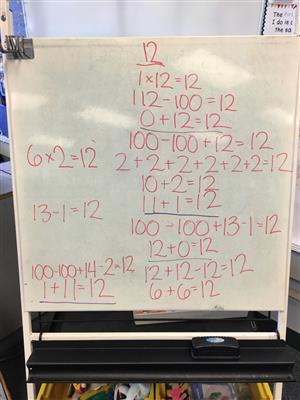 The
I do is
the sa
12
1×12=12
112-100=12
0+12=12
100-100+12=12
6×2=12
2+2+2+2+2+2=12
10+2=12
11+1=12
13-1=12
100-100+13-1=12
12+0=12
100-100+14-2=12
12+12-12=12
1+11=12
6+6=12